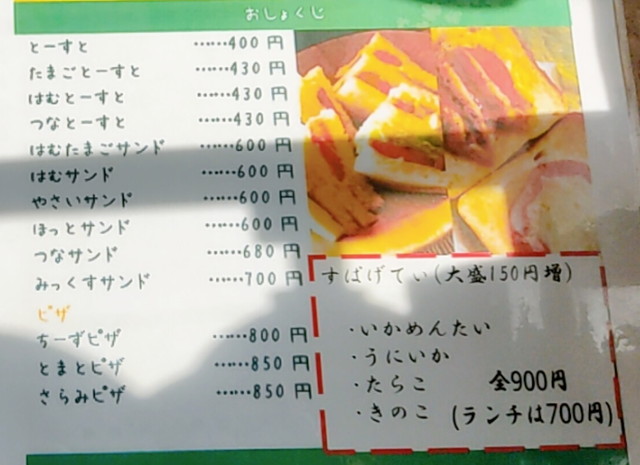 おしょくじ
とーすと ……400 円
たまごとーすと ……430 円
はむとーすと ……430 円
つなとーすと ……430 円
はむたまごサンド ……600 円
はむサンド ……600 円
やさいサンド ……600 円
ほっとサンド ……600 円
つなサンド ……680 円
みっくすサンド ……700 円
ピザ
ちーずピザ ……800 円
とまとピザ ……850 円
さらみピザ ……850 円
すぱげてぃ(大盛150円増)
・いかめんたい
・うにいか
・たらこ 全900円
・きのこ (ランチは700円)